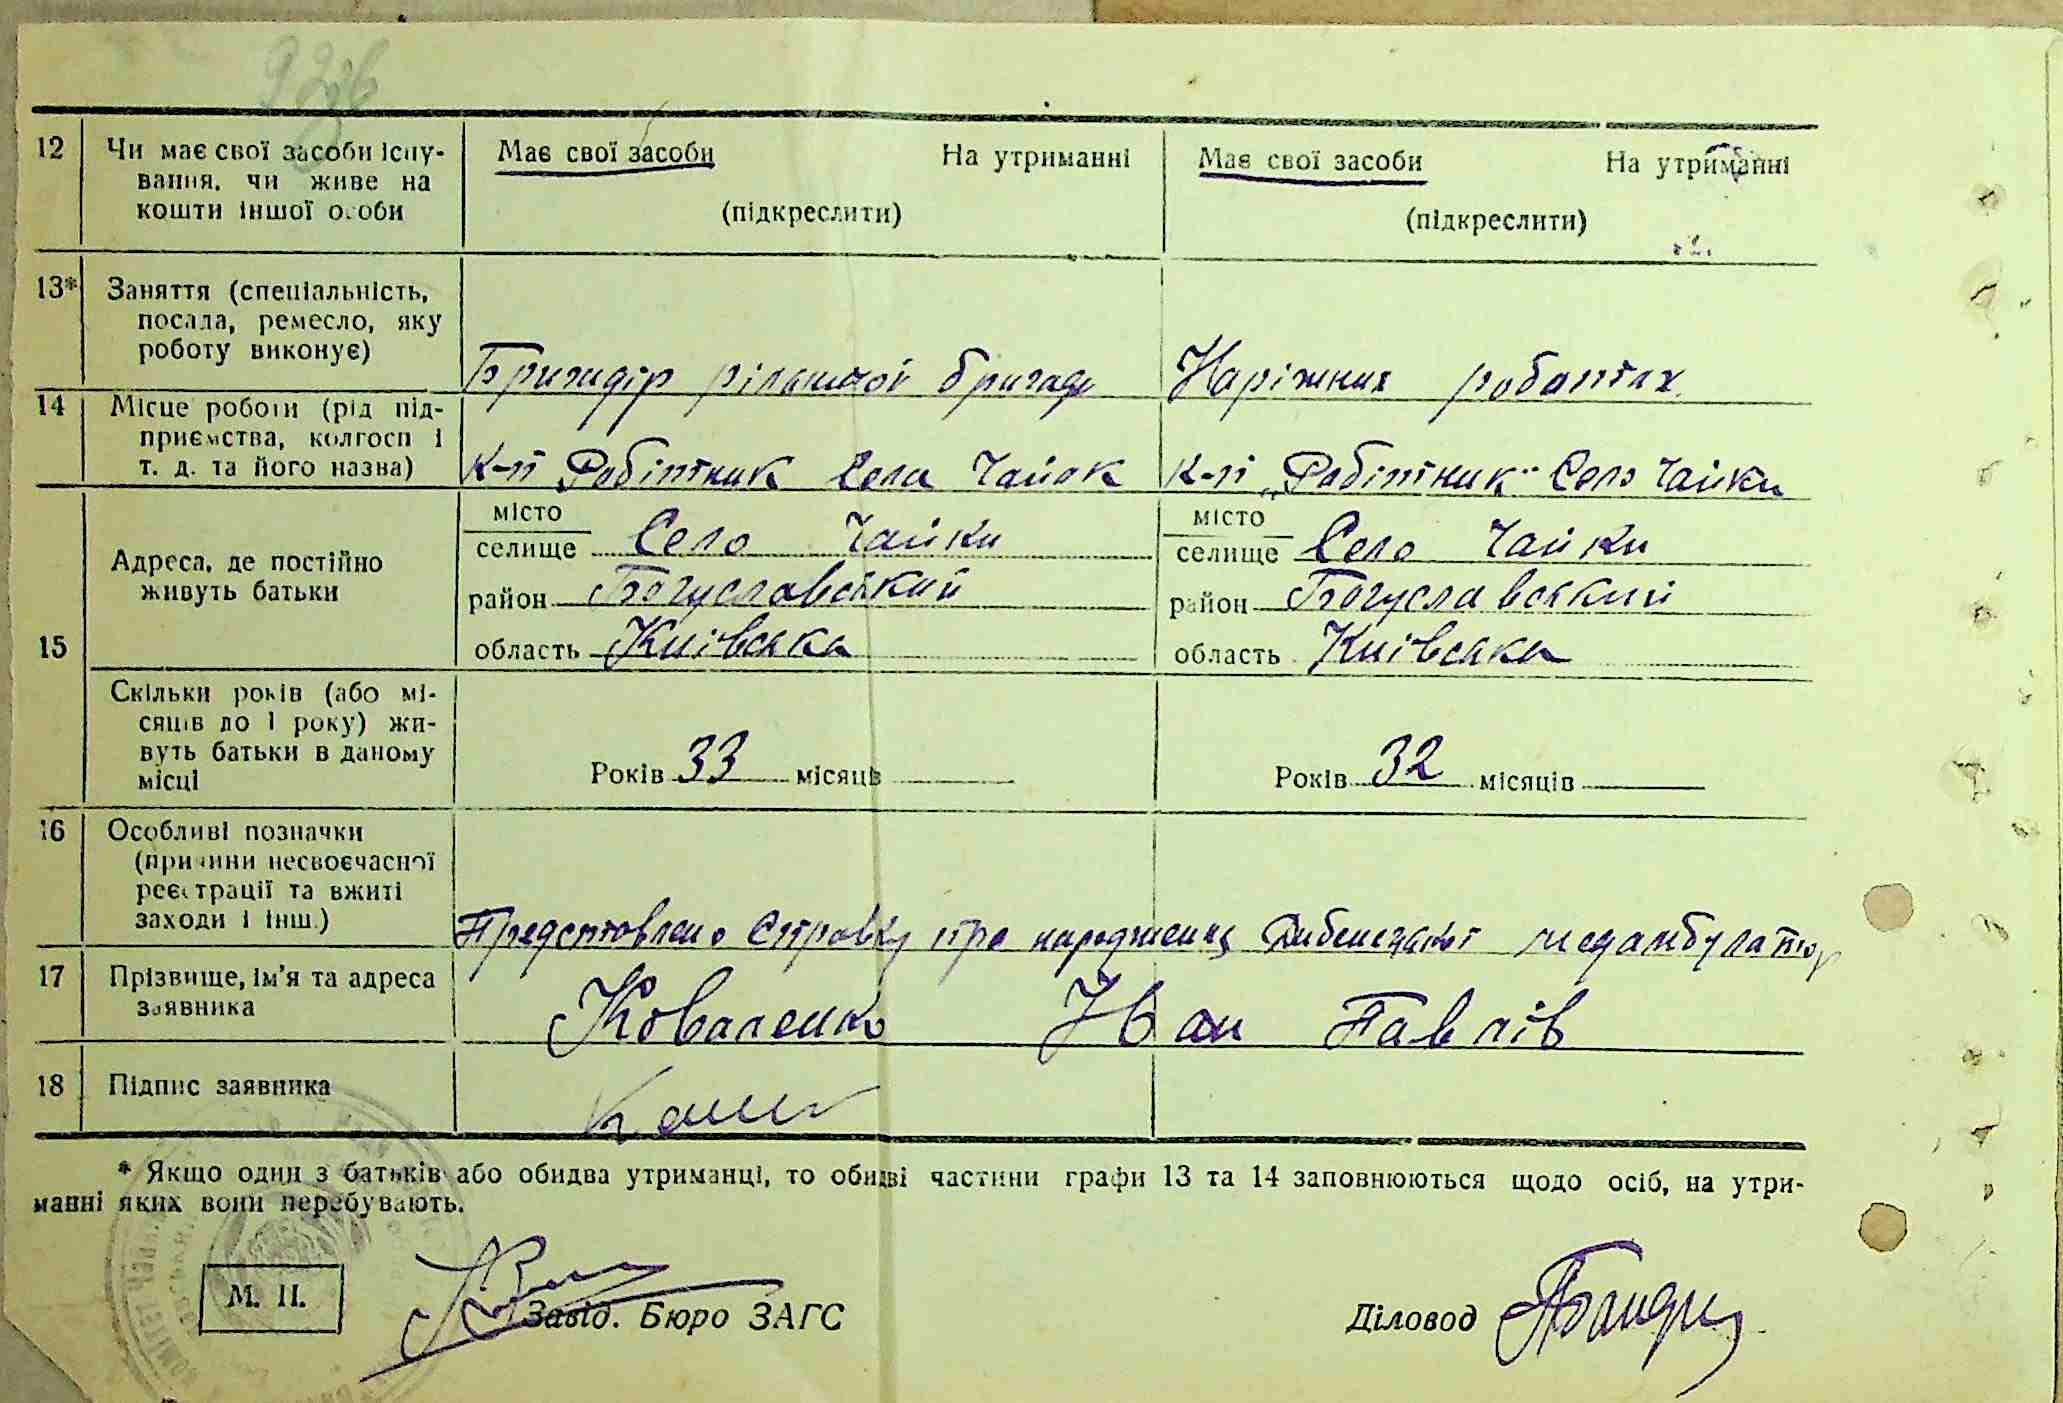 12 Чи має свої засоби існу-
вання, чи живе на
кошти іншої особи
Має свої засоби На утриманні
(підкреслити)
Має свої засоби На утриманні
(підкреслити)
13* Заняття (спеціальність,
посада, ремесло, яку
роботу виконує)
Бригадір рільничої бригади
Наріжних роботах
14 Місце роботи (рід під-
приємства, колгосп і
т. д. та його назва)
К-п Робітник Села Чайок
К-п „Робітник" Село Чайки
15 Адреса, де постійно
живуть батьки
місто
селище Село Чайки
район Богуславський
область Київська
місто
селище Село Чайки
район Богуславський
область Київська
Скільки років (або мі-
сяців до 1 року) жи-
вуть батьки в даному
місці
Років 33 місяців
Років 32 місяців
16 Особливі позначки
(причини несвоєчасної
реєстрації та вжиті
заходи і інш.)
Представлено Справку про народження медамбулатор
17 Прізвище, ім'я та адреса
заявника
Коваленко Іван Павлів
18 Підпис заявника
* Якщо один з батьків або обидва утриманці, то обидві частини графи 13 та 14 заповнюються щодо осіб, на утри-
манні яких вони перебувають.
М. П.
Завід. Бюро ЗАГС
Діловод